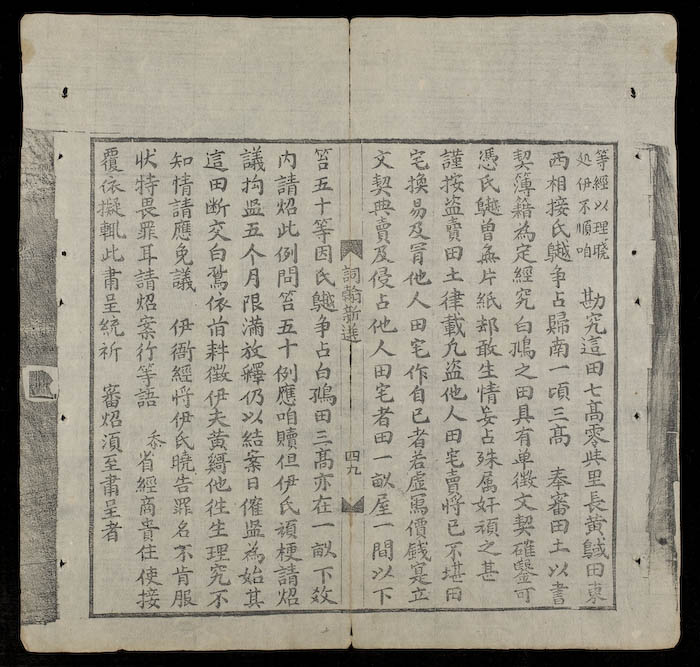 等經以理曉
処伊不順咱
勘究這田七高零里長黃田東
西相接氏爭占歸南一頃三高 奉審田土以書
契簿籍為定經究白鴉之田具有单徵文契確鑿可
憑氏曾無片紙却敢生情妄占殊属奸頑之甚
謹按盜賣田土律載凢盜他人田宅賣將已不堪田
宅換易及冐他人田宅作自已者若虛寫價錢寔立
文契典賣及侵占他人田宅者田一畝屋一間以下
詞翰新選
四九
笞五十等因氏爭占白鴉田三高亦在一畝下效
內請炤此例問笞五十例應咱贖但伊氏頑梗請炤
議拘监五个月限滿放釋仍以結案日催监為始其
這田断交白鴉依旨耕徵伊夫黃他徃生理究不
知情請應免議 伊衙經將伊氏曉告罪名不肯服
狀特畏罪耳請炤案行等語 忝省經商貴住使接
覆依擬輒此肅呈統祈 審炤湏至肅呈者